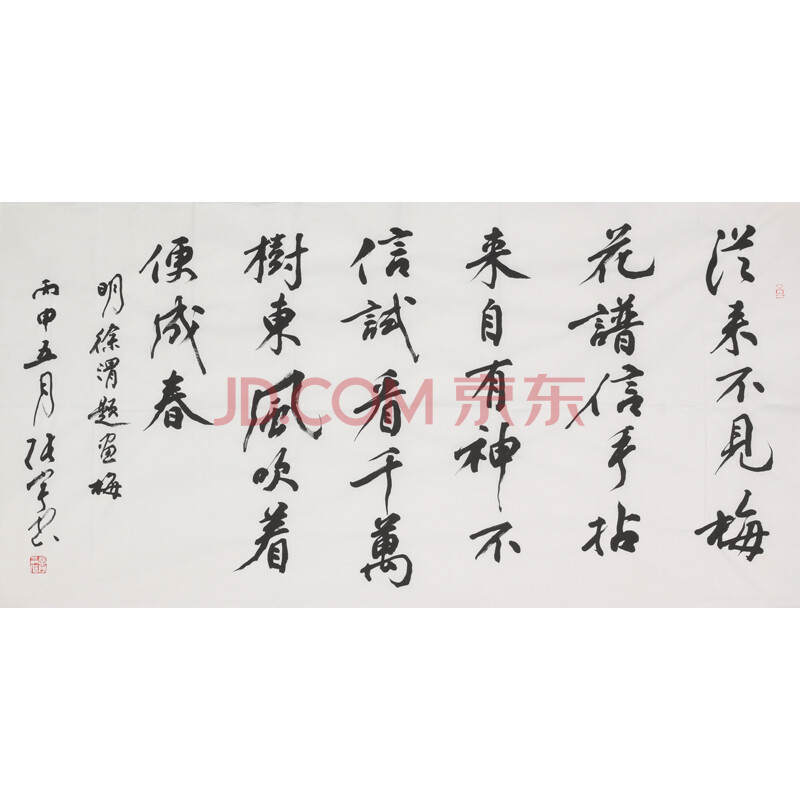 從来不見梅
花譜信手拈
来自有神不
信試看千萬
樹東風吹着
便成春
明徐渭題画梅
丙申五月張宇书
JD.COM 京东